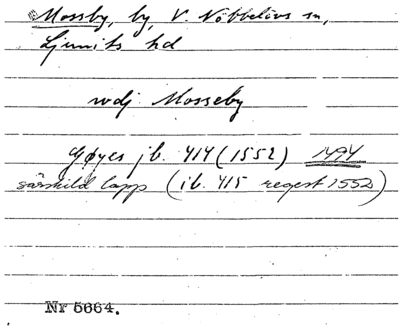 Mossby, by, V. Nöbbelövs sn,
Ljunits hd
wdj Mosseby
Gøyes jb. 414 (1552) 1494
särskild lapp (ib. 415 regest 1552)
Nr 5664.